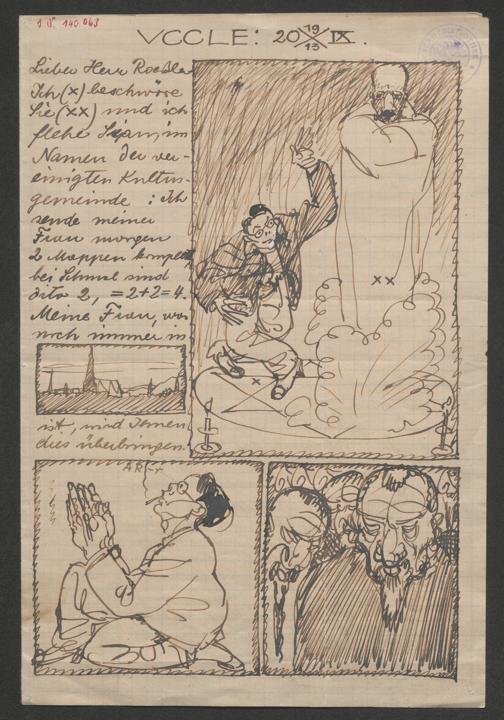 I.N. 140.063
UCCLE: 20 19/13 IX.
Lieber Herr Roessler
Ich (x) beschwöre
Sie (xx) und ich
flehe Sie an, im
Namen der ver-
einigten Kultus-
gemeinde: Ich
sende meiner
Frau morgen
2 Mappen komplett,
bei Schmal sind
dito 2, =2+2=4.
Meine Frau, wo
noch immer in
ist, wird Ihnen
dies überbringen.
xx
x